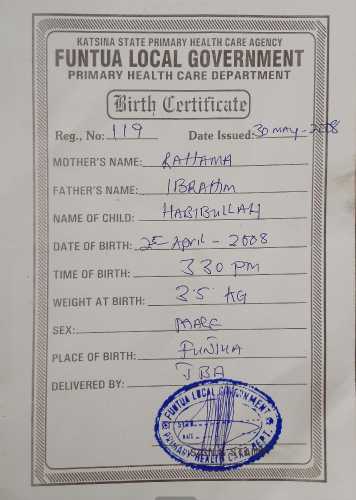 KATSINA STATE PRIMARY HEALTH CARE AGENCY
FUNTUA LOCAL GOVERNMENT
PRIMARY HEALTH CARE DEPARTMENT
Birth Certificate
Reg., No: 119 Date Issued: 30 MAY-2008
MOTHER'S NAME: RAHAMA
FATHER'S NAME: IBRAHIM
NAME OF CHILD: HABIBULLAH
DATE OF BIRTH: April - 2008
TIME OF BIRTH: 330 PM
WEIGHT AT BIRTH: 3.5 KG
SEX: MALE
PLACE OF BIRTH: FUNTUA
DELIVERED BY: TBA
FUNTUA LOCAL GOVERNMENT
SIGN
DATE
PRIMARY HEALTH CARE DEPT.